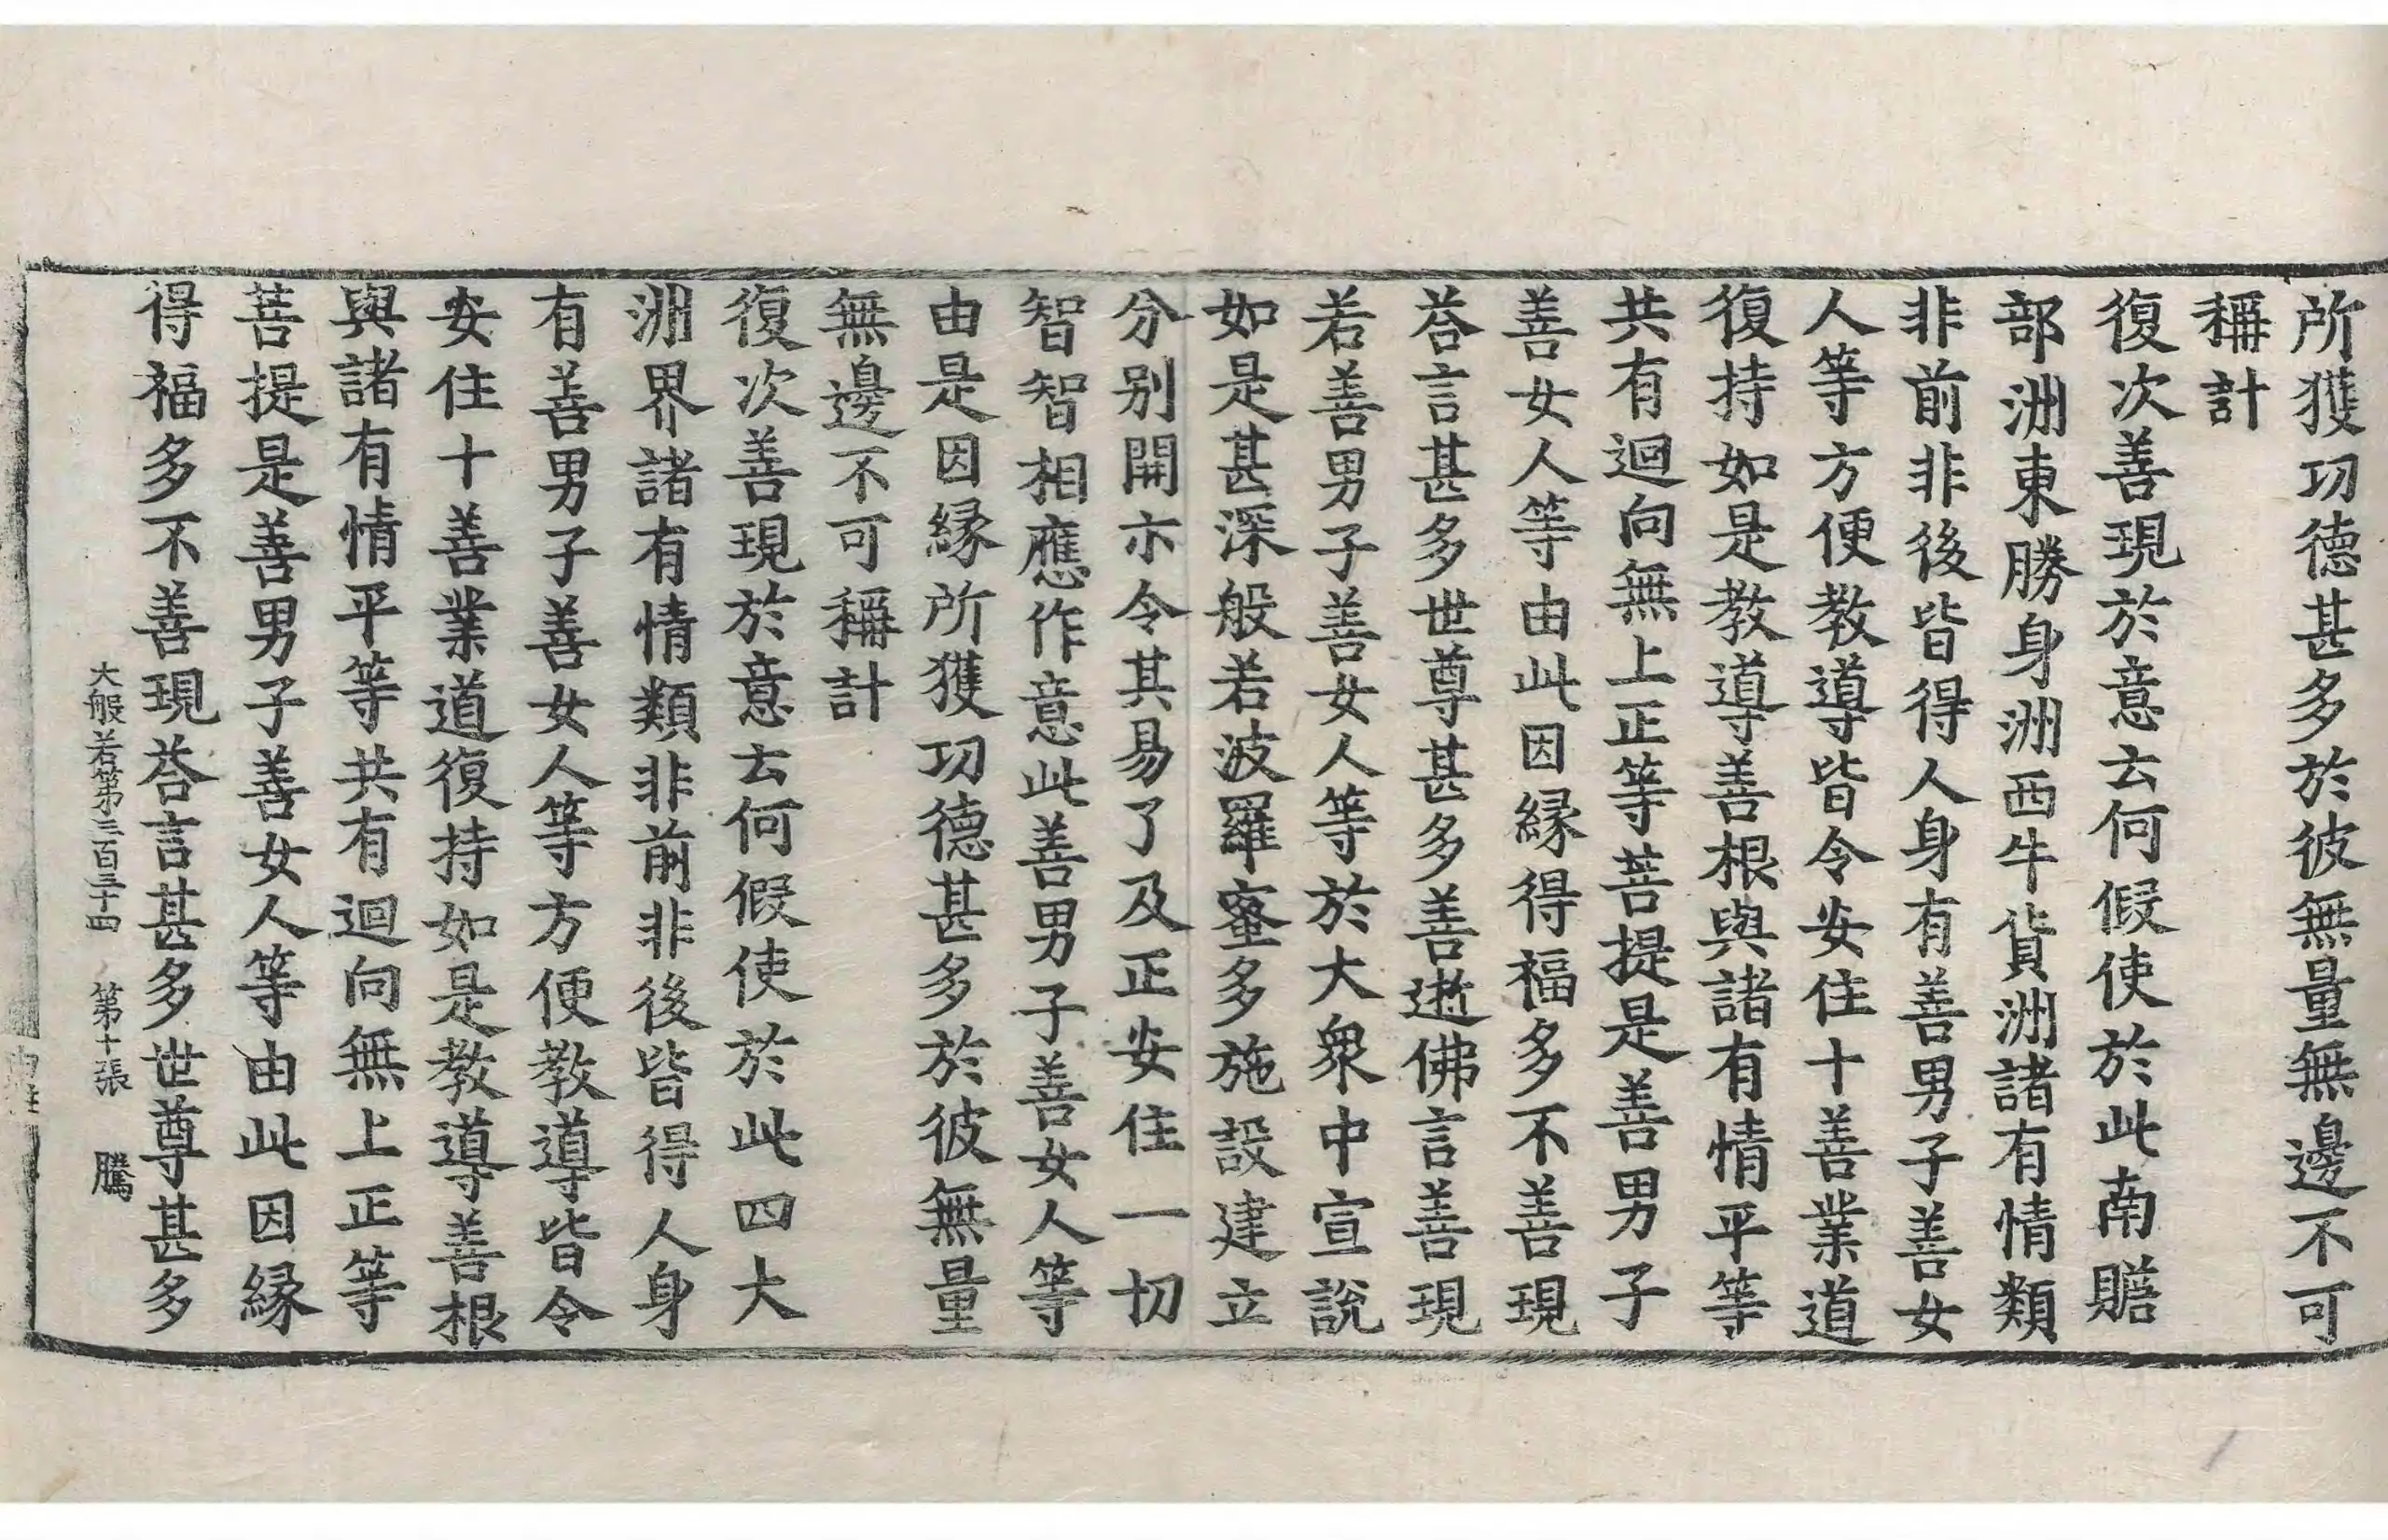 所獲功德甚多於彼無量無邊不可
稱計
復次善現於意云何假使於此南贍
部洲東勝身洲西牛貨洲諸有情類
非前非後皆得人身有善男子善女
人等方便教導皆令安住十善業道
復持如是教導善根與諸有情平等
共有迴向無上正等菩提是善男子
善女人等由此因緣得福多不善現
荅言甚多世尊甚多善逝佛言善現
若善男子善女人等於大衆中宣說
如是甚深般若波羅蜜多施設建立
分別開示令其易了及正安住一切
智智相應作意此善男子善女人等
由是因緣所獲功德甚多於彼無量
無邊不可稱計
復次善現於意云何假使於此四大
洲界諸有情類非前非後皆得人身
有善男子善女人等方便教導皆令
安住十善業道復持如是教導善根
與諸有情平等共有迴向無上正等
菩提是善男子善女人等由此因緣
得福多不善現荅言甚多世尊甚多
大般若第三百三十四 第十張 騰